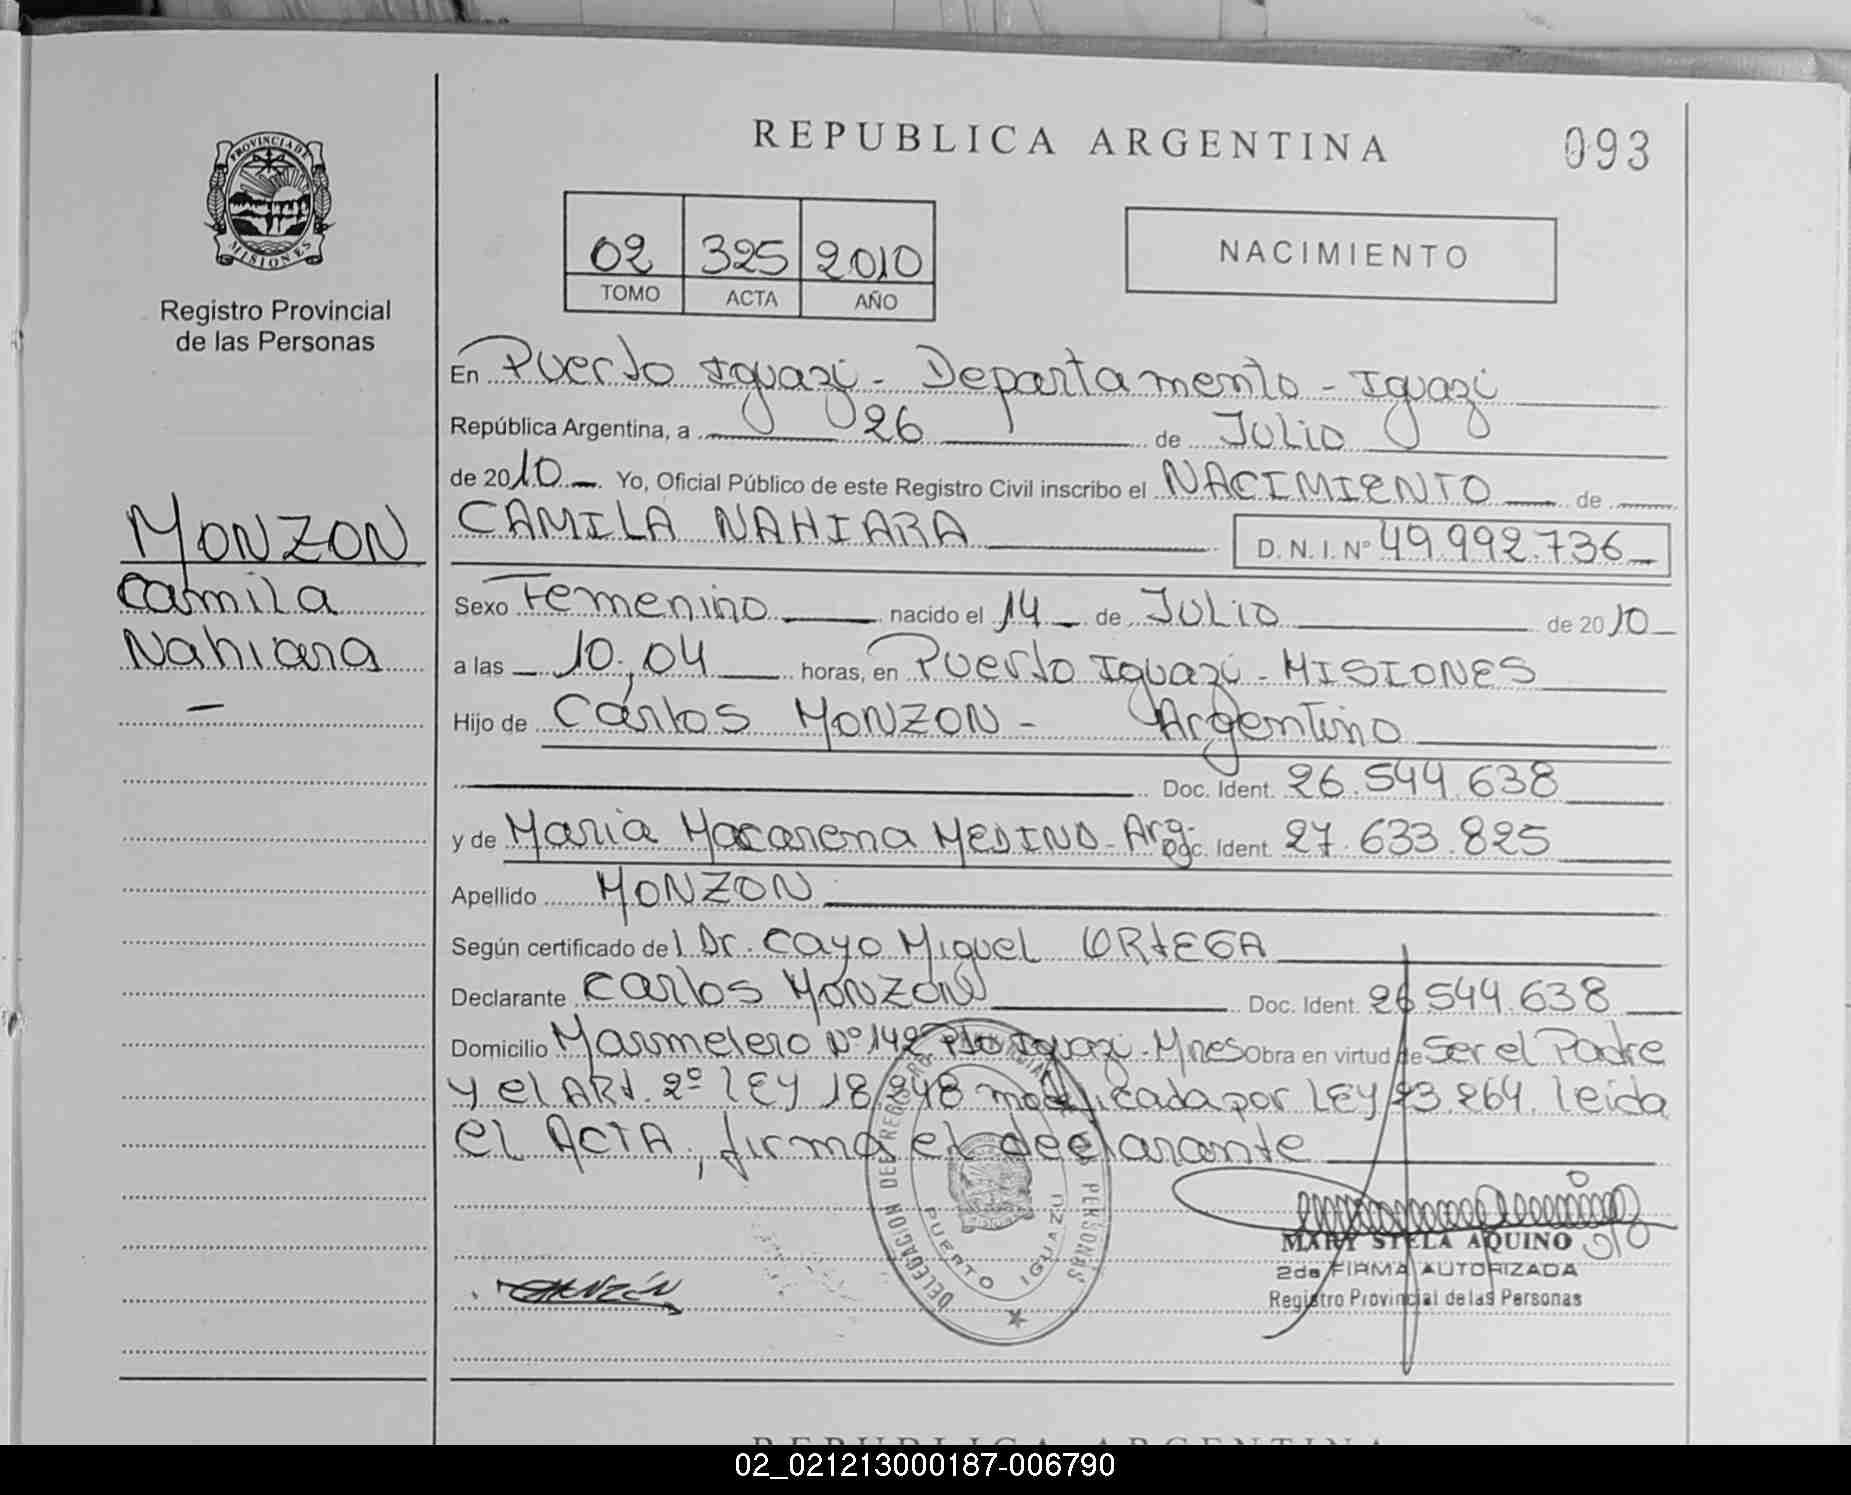 REPUBLICA ARGENTINA
093
PROVINCIA DE MISIONES
Registro Provincial
de las Personas
02 325 2010
TOMO ACTA AÑO
NACIMIENTO
En Puerto Iguazú - Departamento - Iguazú
República Argentina, a 26 de Julio
de 2010 Yo, Oficial Público de este Registro Civil inscribo el NACIMIENTO de
CAMILA NAHIARA D.N.I. Nº 49.992.736
MONZON
Camila
Nahiara
Sexo Femenino nacido el 14 de Julio de 2010
a las 10:04 horas, en Puerto Iguazú - MISIONES
Hijo de Carlos MONZON - Argentino
Doc. Ident. 26.544.638
y de Maria Macarena MEDINO - Arg. Doc. Ident. 27.633.825
Apellido MONZON
Según certificado del Dr. Cayo Miguel ORTEGA
Declarante Carlos MONZON Doc. Ident. 26 544.638
Domicilio Marmelero Nº 142 Pto Iguazú - Mnes Obra en virtud de Ser el Padre
y el ARt. 2º LEY 18.248 modificada por LEY 23.264. leida
el ACTA, firma el declarante
DELEGACION DEL REGISTRO PROVINCIAL PERSONAS
PUERTO IGUAZU
MARY STELA AQUINO
2da FIRMA AUTORIZADA
Registro Provincial de las Personas
REPUBLICA ARGENTINA
02_021213000187-006790